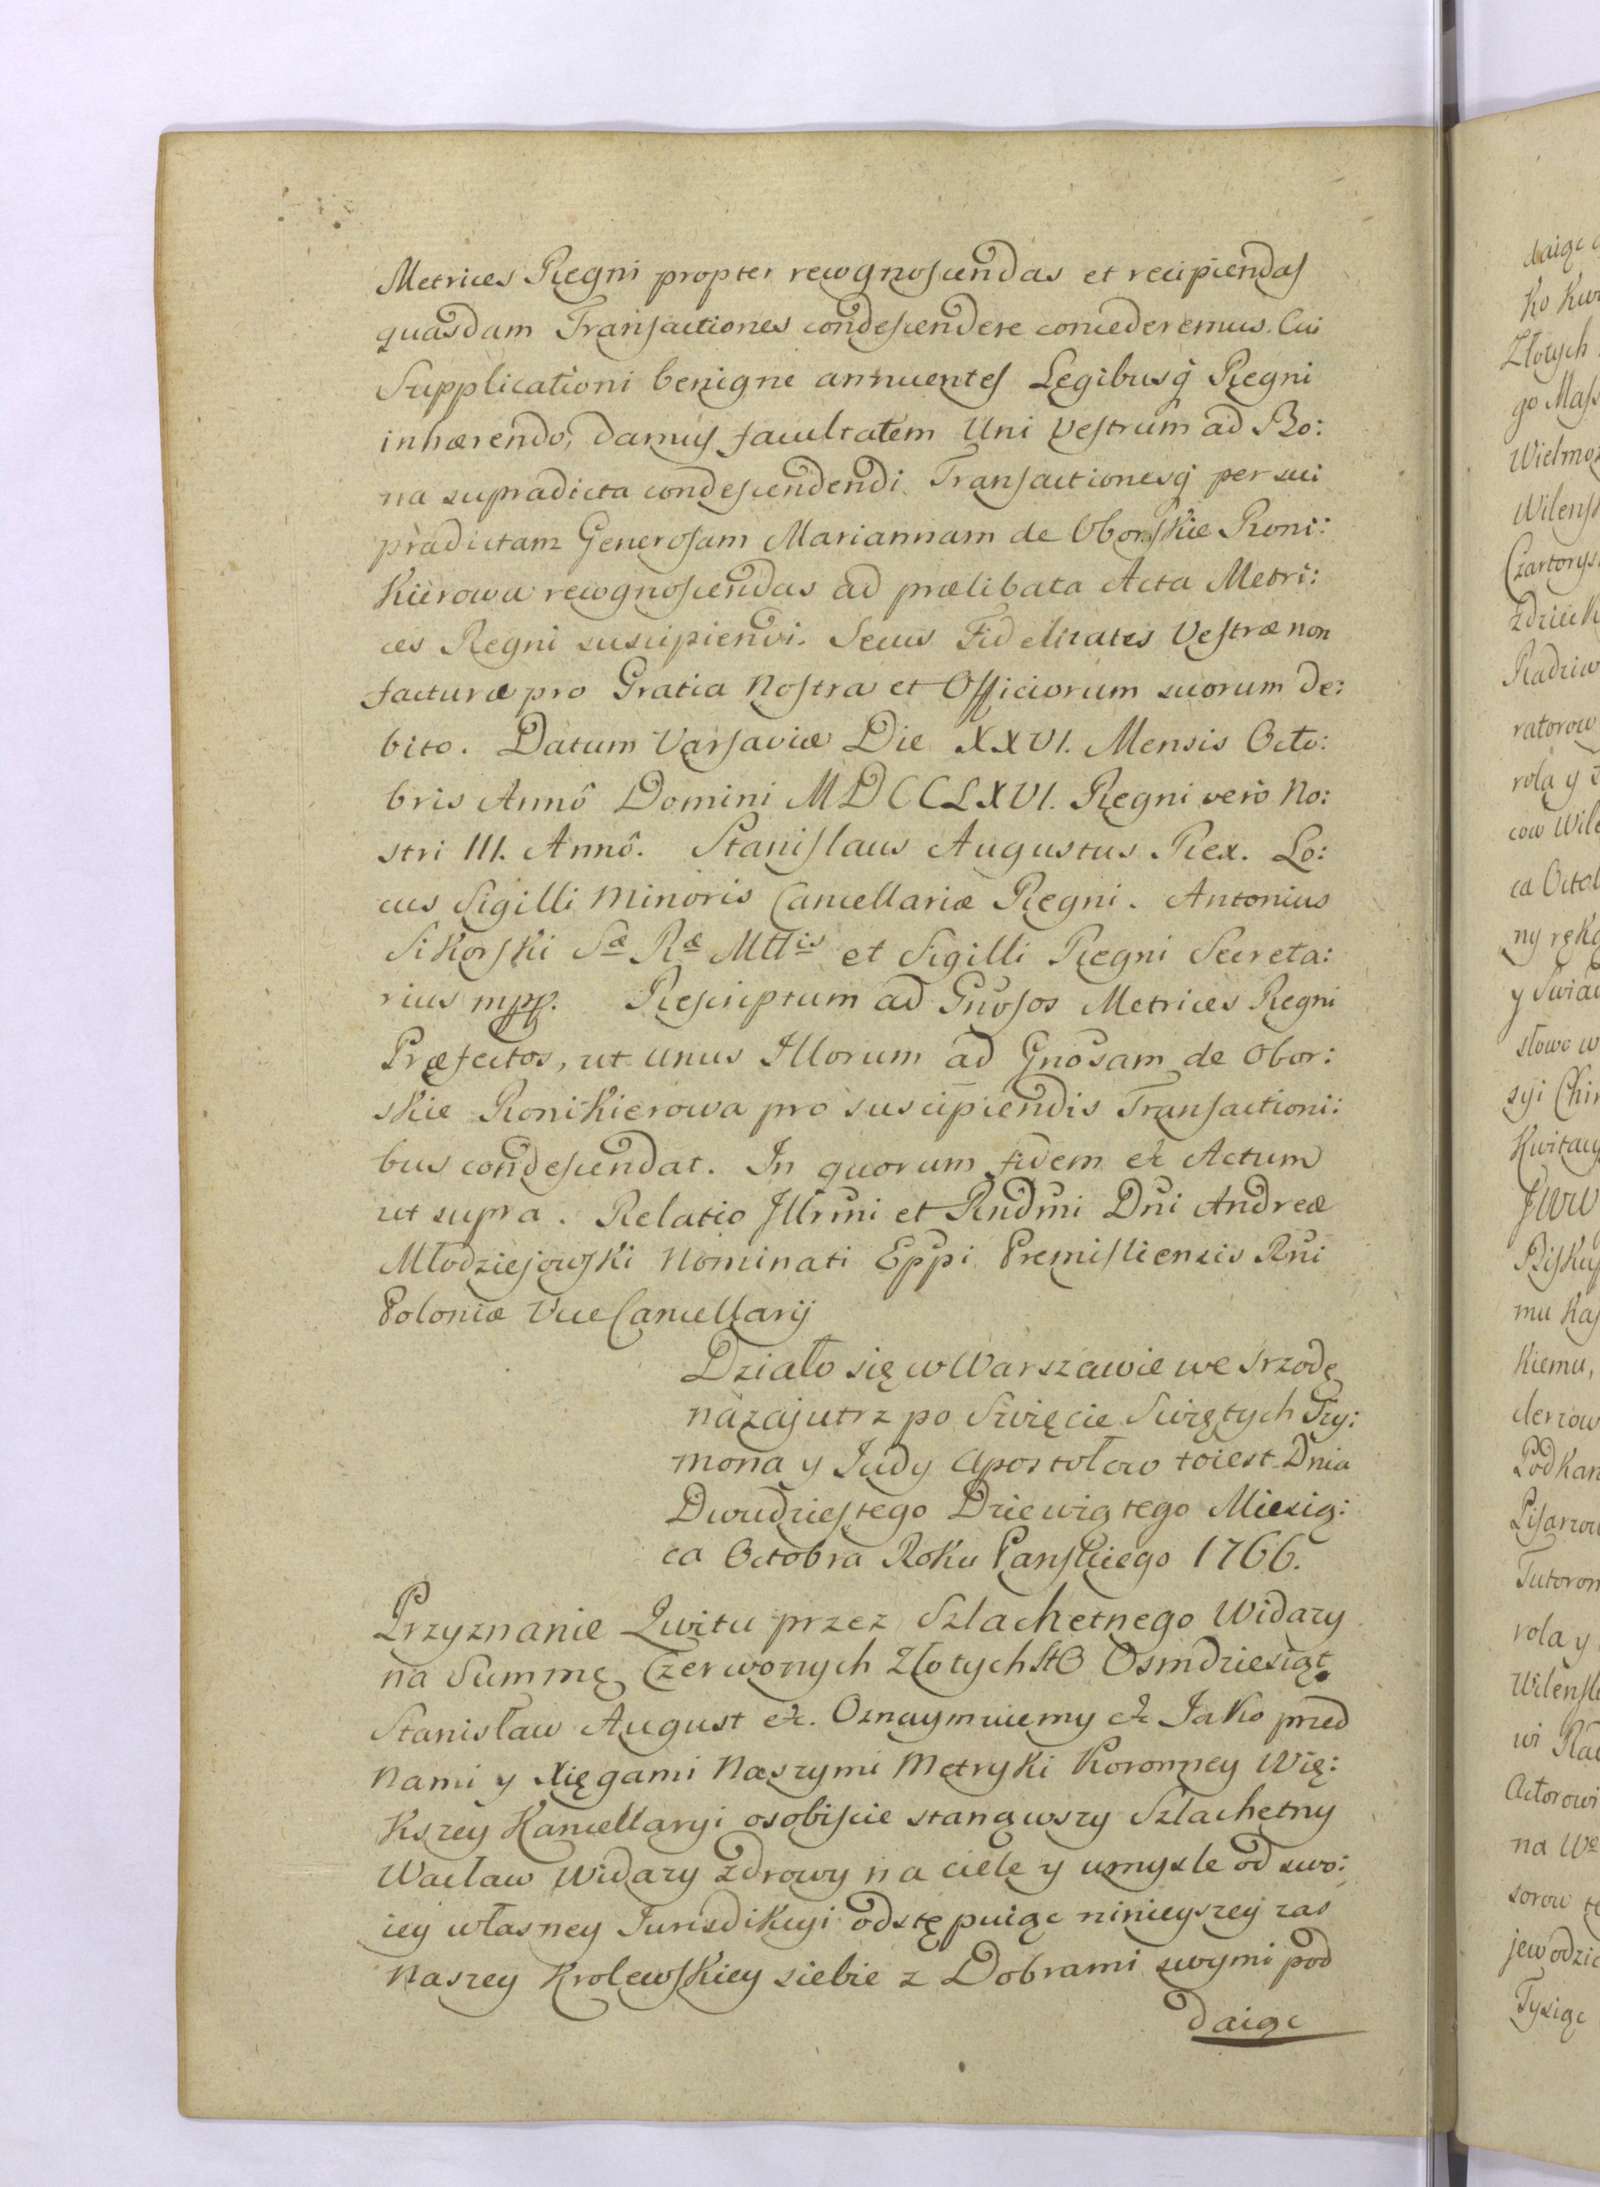 Metrices Regni propter recognoscendas et recipiendas
quasdam Transactiones condescendere concederemus. Cui
Supplicationi benigne annuentes Legibusq́ Regni
inhærendo, damus facultatem Uni Vestrum ad Bo:
na supradicta condescendendi Transactionesq́ per sui
prædictam Generosam Mariannam de Oborskie Roni:
kierowa recognoscendas ad prælibata Acta Metri:
ces Regni suscipiendi. Secus Fidelitates Vestræ non
facturæ pro Gratia Nostra et Officiorum suorum de:
bito. Datum Varsaviæ Die XXVI. Mensis Octo:
bris Annô Domini MDCCLXVI. Regni verò No:
stri III. Annô. Stanislaus Augustus Rex. Lo:
cus Sigilli Minoris Cancellariæ Regni. Antonius
Sikorski Sæ Ræ Mttis et Sigilli Regni Secreta:
rius mpp. Rescriptum ad Gnosos Metrices Regni
Præfectos, ut unus Illorum ad Gnosam de Obor:
skie Ronikierowa pro suscipiendis Transactioni:
bus condescendat. In quorum fidem &c Actum
ut supra. Relatio Illrmi et Rndmi Dni Andreæ
Młodziejowski Nominati Eppi Premisliensis Rni
Poloniæ ViceCancellarij
Działo się w Warszawie we Srzodę
nazajutrz po Swięcie Swiętych Szy:
mona y Judy Apostołow toiest Dnia
Dwudziestego Dziewiątego Miesią:
ca Octobra Roku Panskiego 1766.
Przyznanie Kwitu przez Szlachetnego Widazy
na Summę Czerwonych Złotych Sto Osmdziesiąt
Stanisław August &c. Oznaymuiemy &c Jako przed
Nami y Xięgami Naszymi Metryki Koronney Wię:
kszey Kancellaryi osobiscie stanąwszy Szlachetny
Wacław Widazy zdrowy na ciele y umysle od swo:
iey własney Jurisdikcyi odstępuiąc ninieyszey zas
Naszey Krolewskiey siebie z Dobrami swymi pod
daiąc
daiąc
Złotych
Wielmoz
Wilensk
Czartorys
Radziw
ratorow
rolą y
cow Wile
ca Octob
słowo w
mu Kas
kiemu,
Podkan
Pisarzow
Tutorom
rola y
Wilensk
na We
sorow
jewodzic
Tysiąc